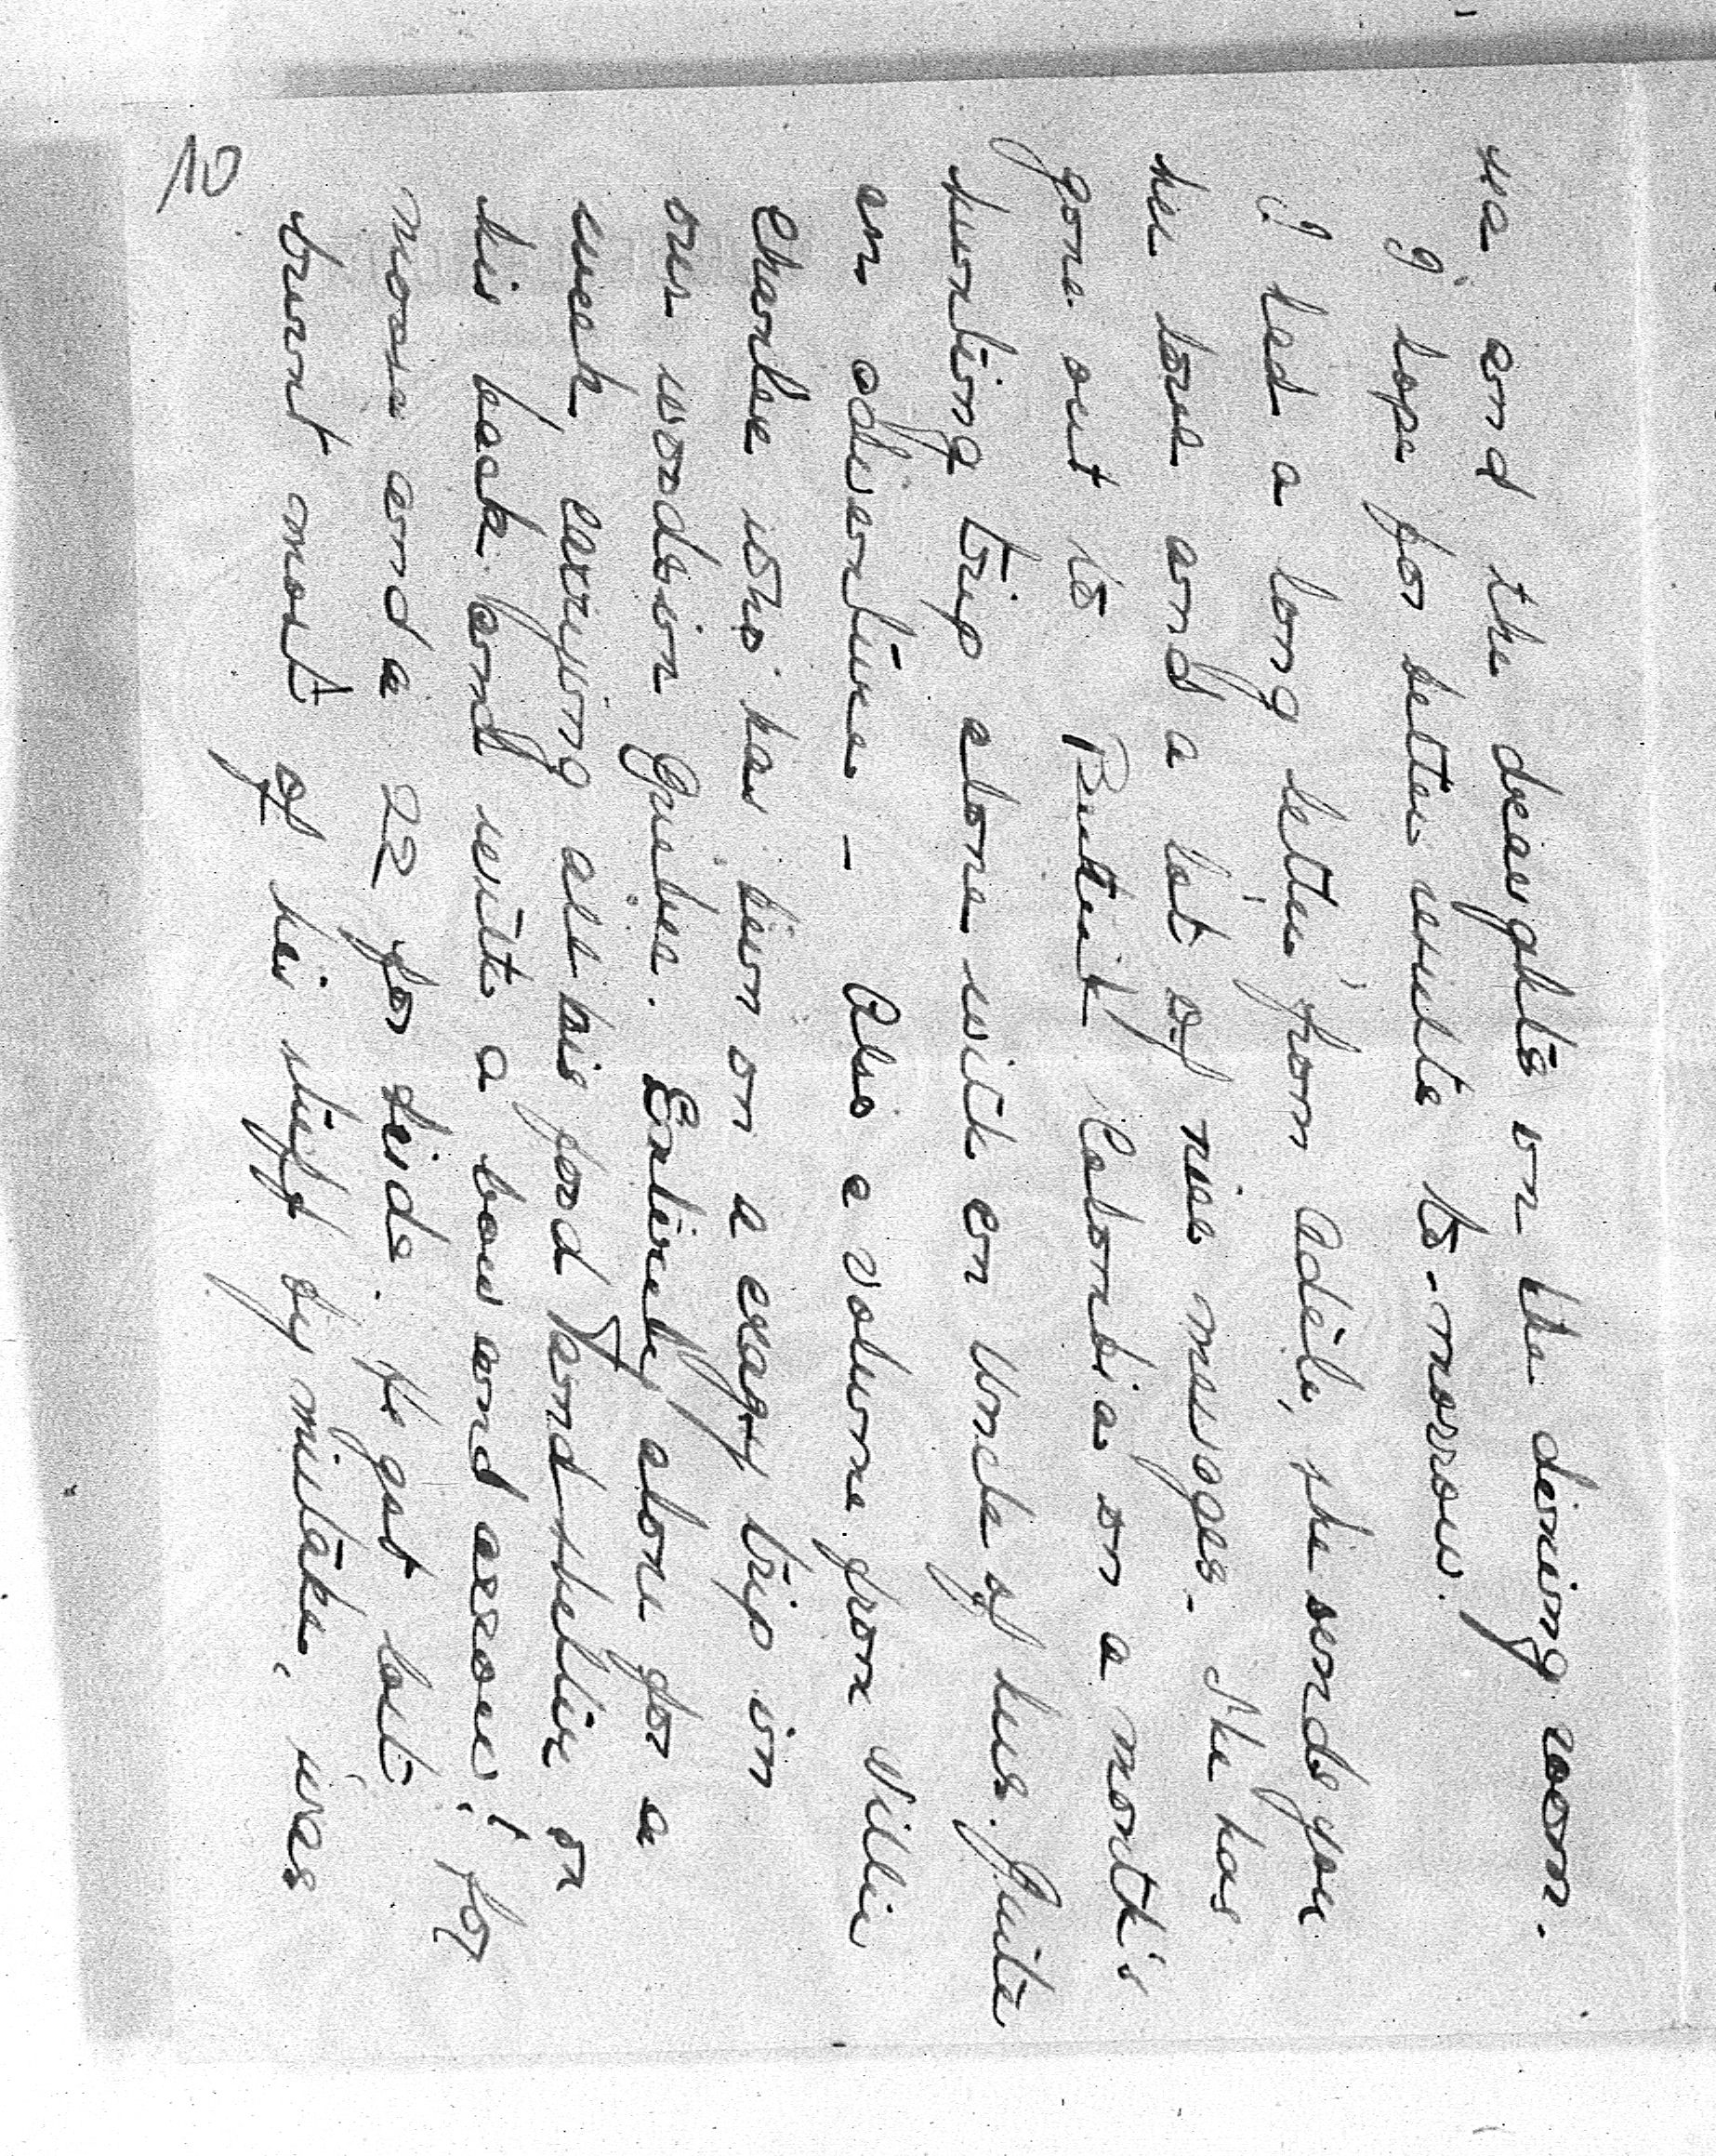 us and the draughts in the dining room.
I hope for better results to-morrow.
I had a long letter from Adèle, she sends you
her love and a lot of nice messages. She has
gone out to British Colombia on a month's
hunting trip alone with an Uncle of hers. Quite
an adventure - Also a volume from Willie
Charlee who has been on a crazy trip in
our woods in Quebec. Entirely alone for a
week, carrying all his food and shelter on
his back and with a bow and arrow! for
moose and a 22 for birds. He got lost
burnt most of his stuff by mistake, was
10